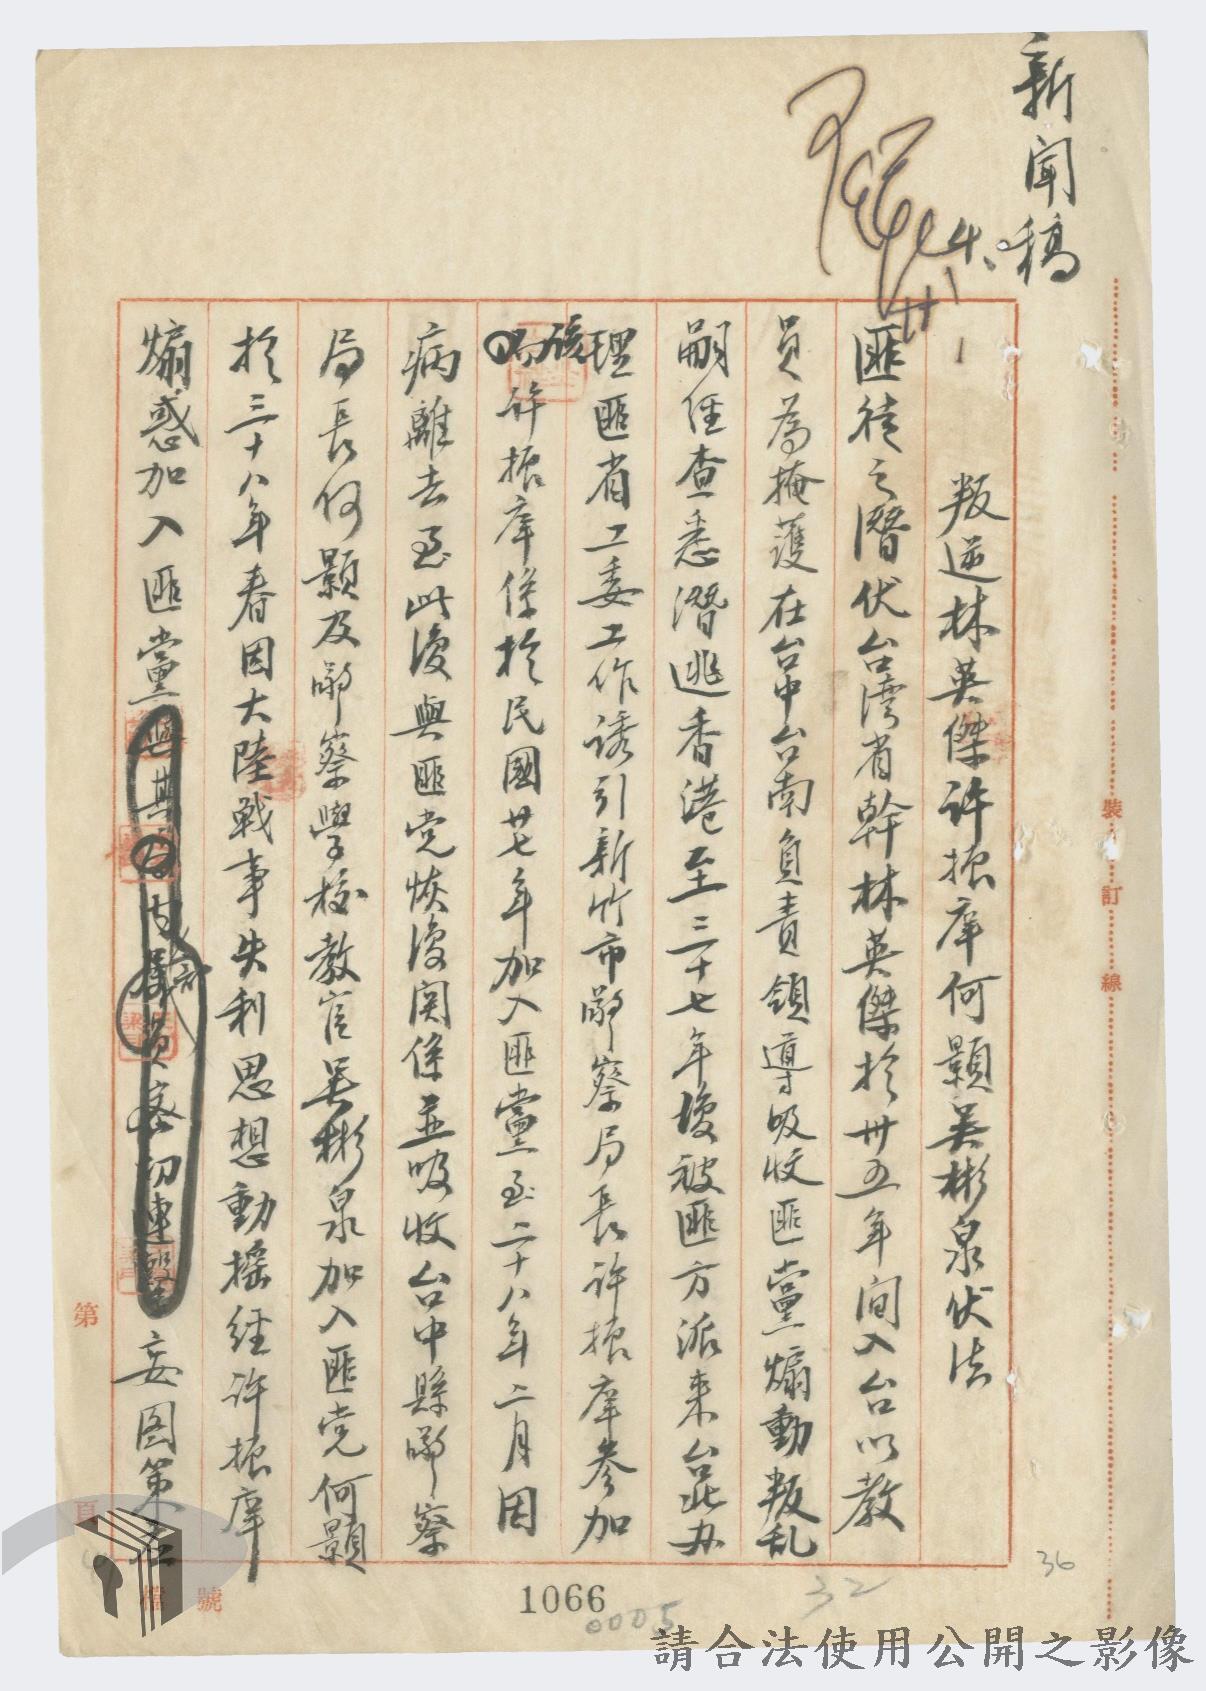 新聞稿
叛逆林英傑許振庠何顯吳彬泉伏法
匪徒之潛伏台灣省幹林英傑於卅五年間入台以教
員為掩護在台中台南負責領導吸收匪黨煽動叛乱
嗣經查悉潛逃香港至三十七年復被匪方派來台北办
理匪省工委工作誘引新竹市警察局長許振庠參加
該許振庠係於民國廿七年加入匪黨至二十八年二月因
病離去至此復與匪党恢復関係並吸收台中縣警察
局長何顯及警察學校教官吳彬泉加入匪党何顯
於三十八年春因大陸戰事失利思想動搖經許振庠
煽惑加入匪黨妄图策應
裝訂線
第
頁
檔號
1066
0005
32
36
請合法使用公開之影像